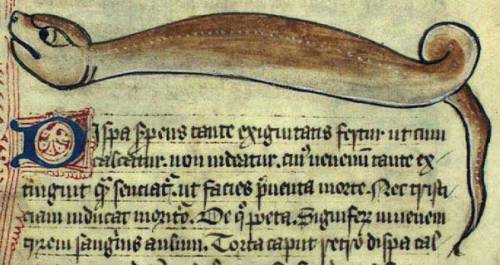 Dispa s̕pens tante exiguitatis fertur ut cum
calcetur. non uideatur. cuiꝰ uenenum tante ex
tinguit qͣ senciat᷑. ut facies p̄uenta morte. Nec tristi
ciam inducat morit᷑o. De qͦ poeta. Signifeꝝ iuuenem
tyrem sanguis aulum. Torta caput retro dispa cal